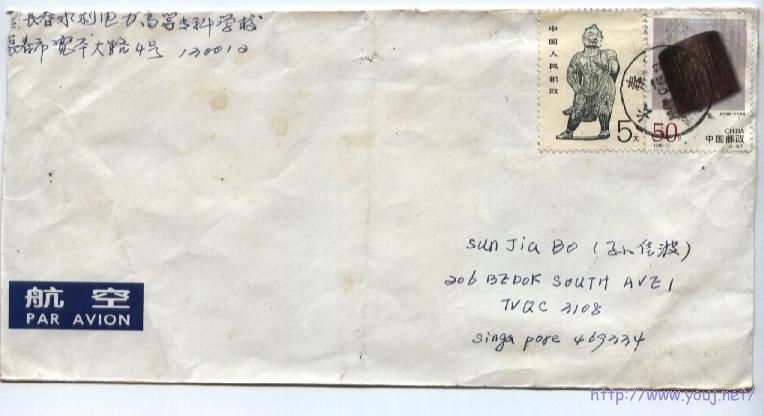 长春水利电力高等专科学校
长春市宽平大路4号 130012
中国人民邮政
5元
50分
CHINA
中国邮政
长春
Sun Jia Bo (孙佳波)
206 BEDOK SOUTH AVE 1
TVQC 3108
Singapore 469334
航空
PAR AVION
http://www.youj.net/